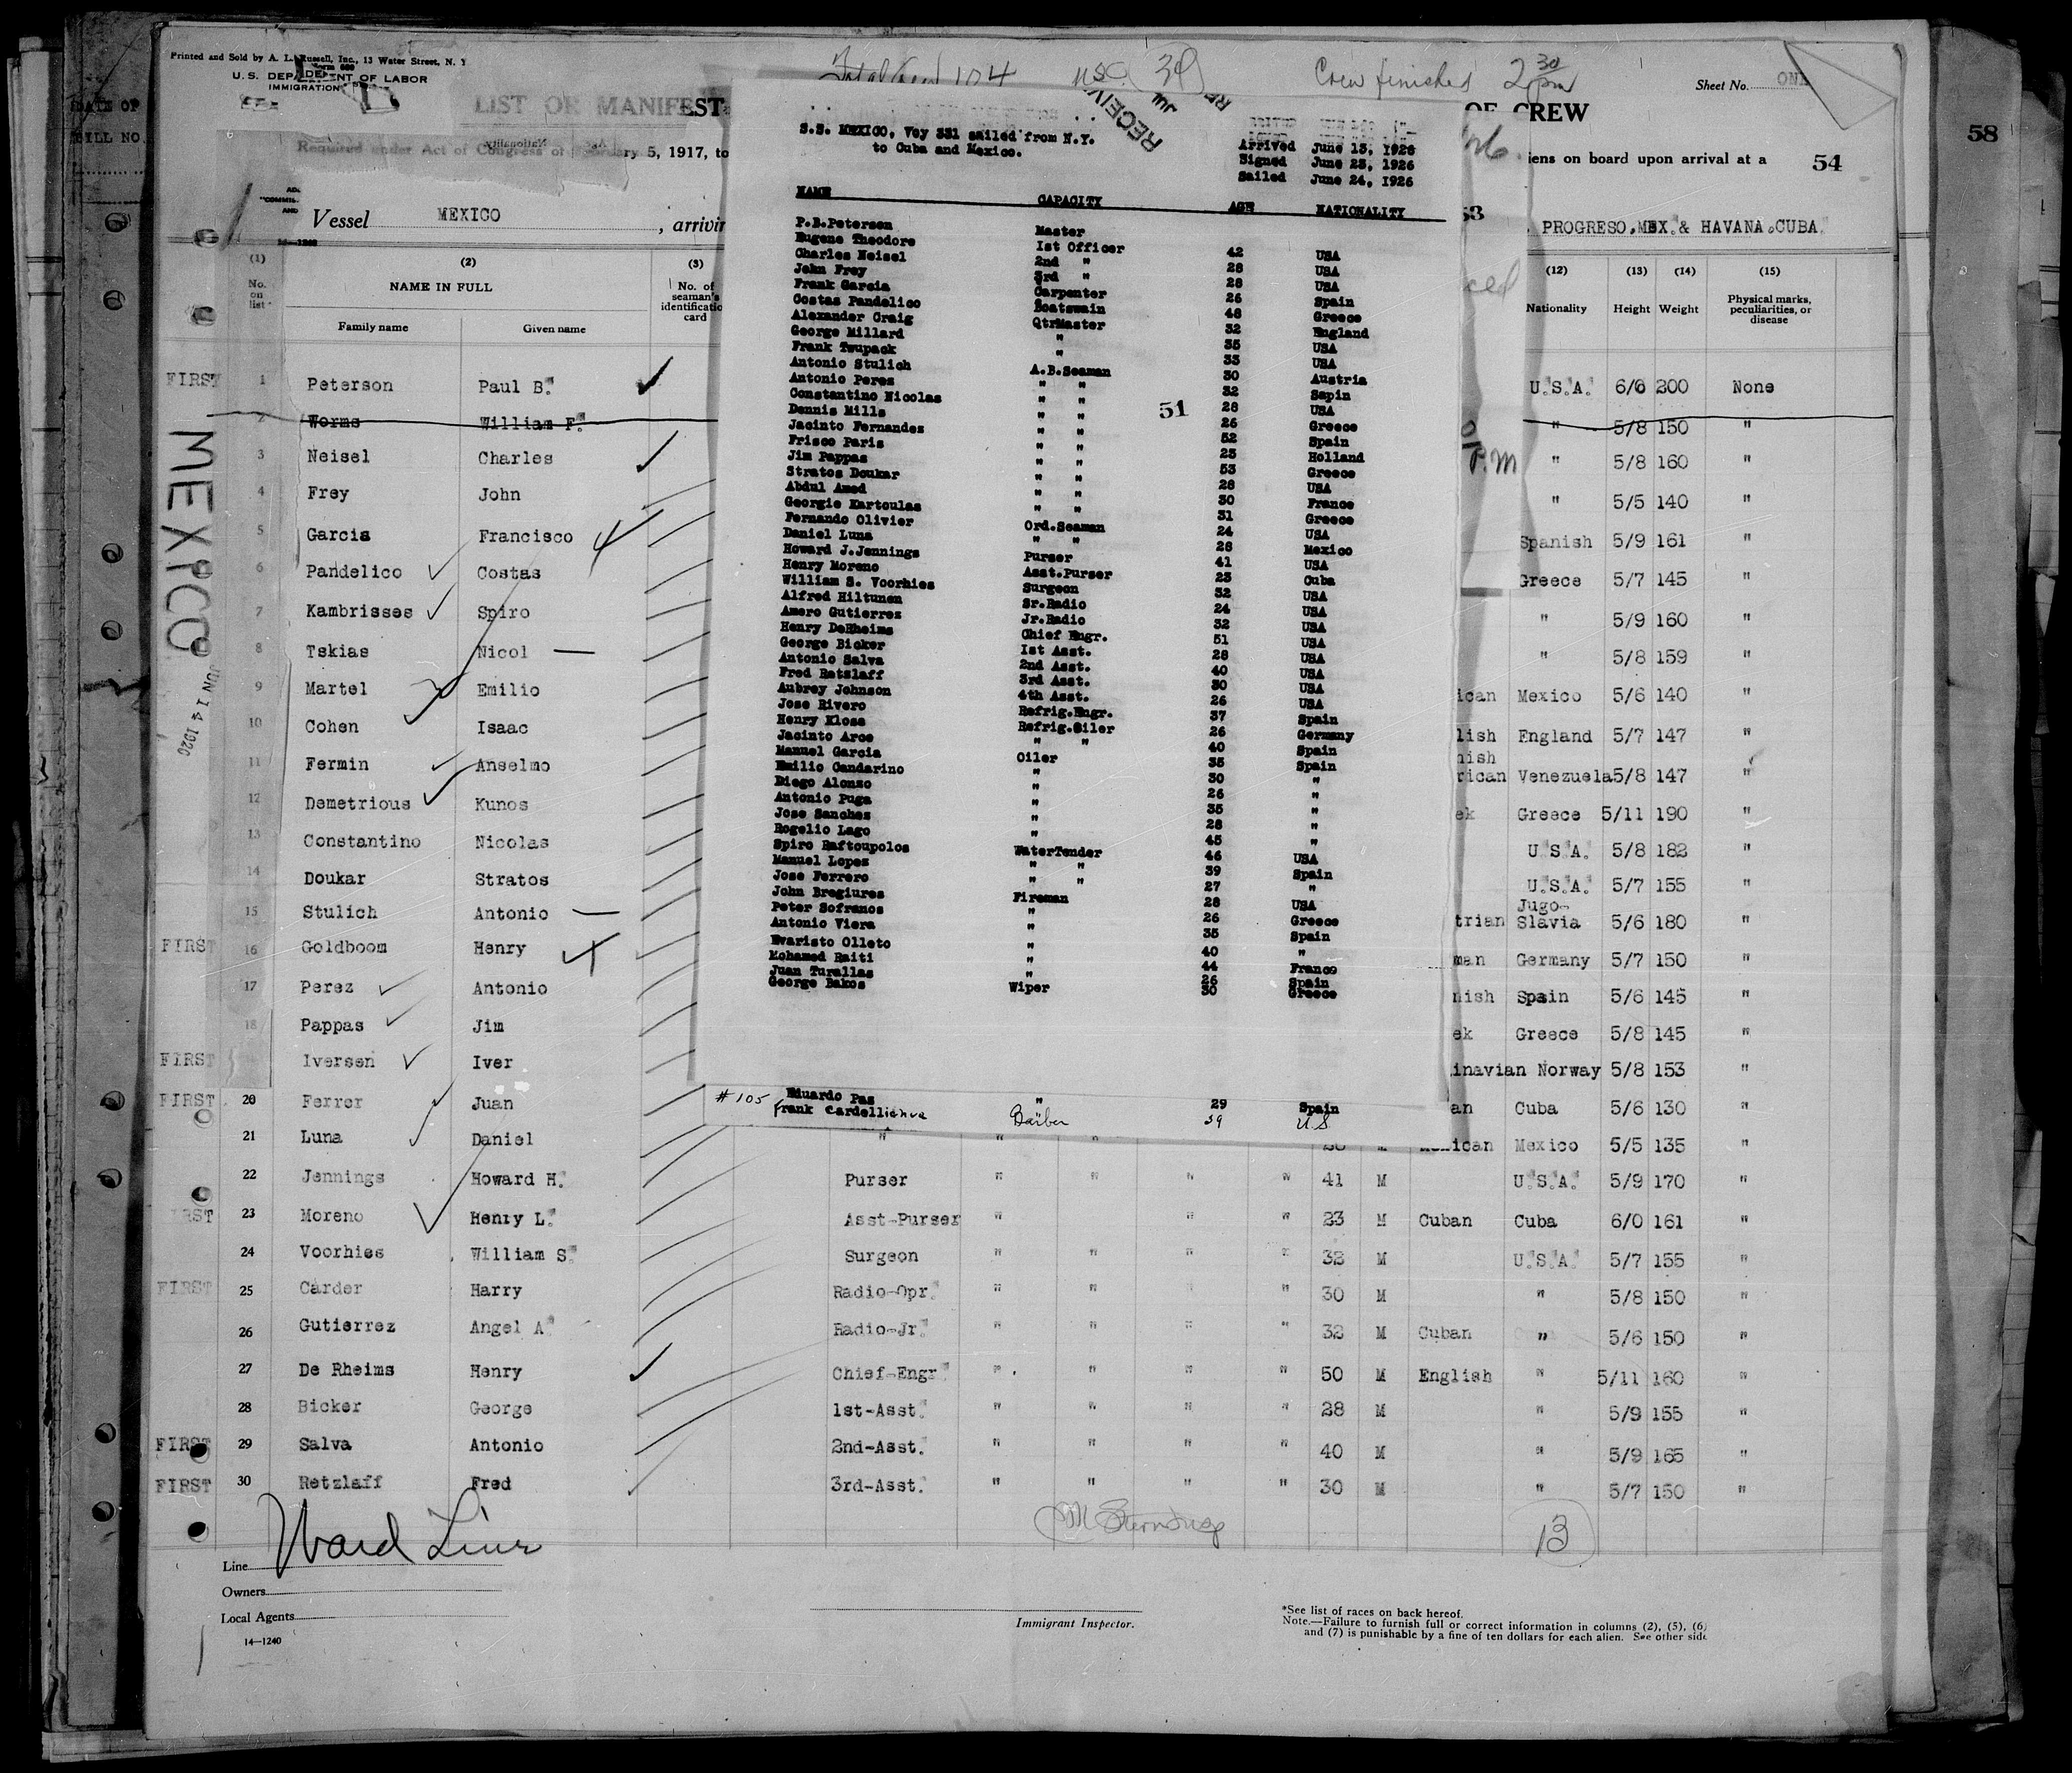 Printed and Sold by A. L. Russell, Inc., 13 Water Street, N. Y
U.S. DEPARTMENT OF LABOR
IMMIGRATION
LIST OR MANIFEST
OF CREW
Total Crew 104
Crew finished 2 30 pm
Sheet No. ONE
Required under Act of Congress of February 5, 1917, to
iens on board upon arrival at a
54
58
Vessel MEXICO, arrivin
PROGRESO, MEX. & HAVANA CUBA.
DATE OF
BILL NO.
MEXICO
JUN 14 1926
(1) (2) (3) (12) (13) (14) (15)
No. on list
NAME IN FULL
Family name Given name
No. of seaman's identificatio card
Nationality Height Weight Physical marks, peculiarities, or disease
FIRST 1 Peterson Paul B. U.S.A. 6/6 200 None
2 Worms William F. " 5/8 150 "
3 Neisel Charles " 5/8 160 "
4 Frey John " 5/5 140 "
5 Garcia Francisco Spanish 5/9 161 "
6 Pandelico Costas Greece 5/7 145 "
7 Kambrisses Spiro " 5/9 160 "
8 Tskias Nicol " 5/8 159 "
9 Martel Emilio ican Mexico 5/6 140 "
10 Cohen Isaac lish England 5/7 147 "
11 Fermin Anselmo nish rican Venezuela 5/8 147 "
12 Demetrious Kunos ek Greece 5/11 190 "
13 Constantino Nicolas U.S.A. 5/8 182 "
14 Doukar Stratos U.S.A. 5/7 155 "
15 Stulich Antonio trian Jugo-Slavia 5/6 180 "
FIRST 16 Goldboom Henry man Germany 5/7 150 "
17 Perez Antonio nish Spain 5/6 145 "
18 Pappas Jim ek Greece 5/8 145 "
FIRST Iversen Iver inavian Norway 5/8 153 "
FIRST 20 Ferrer Juan an Cuba 5/6 130 "
21 Luna Daniel " " " M Mexican Mexico 5/5 135 "
22 Jennings Howard H. Purser " " " " 41 M U.S.A. 5/9 170 "
IRST 23 Moreno Henry L. Asst-Purser " " " 23 M Cuban Cuba 6/0 161 "
24 Voorhies William S. Surgeon " " " " 32 M U.S.A. 5/7 155 "
FIRST 25 Carder Harry Radio-Opr. " " " " 30 M " 5/8 150 "
26 Gutierrez Angel A. Radio-Jr. " " " " 32 M Cuban " 5/6 150 "
27 De Rheims Henry Chief-Engr. " " " " 50 M English " 5/11 160 "
28 Bicker George 1st-Asst. " " " " 28 M " 5/9 155 "
FIRST 29 Salva Antonio 2nd-Asst. " " " " 40 M " 5/9 165 "
FIRST 30 Retzlaff Fred 3rd-Asst. " " " " 30 M " 5/7 150 "
13
Line Ward Line
Owners
Local Agents
14—1240
Immigrant Inspector.
*See list of races on back hereof.
Note.—Failure to furnish full or correct information in columns (2), (5), (6)
and (7) is punishable by a fine of ten dollars for each alien. See other side
RECEIV
S.S. MEXICO, Voy 331 sailed from N.Y.
to Cuba and Mexico.
Arrived June 13, 1926
Signed June 23, 1926
Sailed June 24, 1926
NAME CAPACITY AGE NATIONALITY
P.B.Peterson Master
Eugene Theodore 1st Officer 42 USA
Charles Neisel 2nd " 28 USA
John Frey 3rd " 28 USA
Frank Garcia Carpenter 26 Spain
Costas Pandelico Boatswain 48 Greece
Alexander Craig QtrMaster 32 England
George Millard " 35 USA
Frank Tsupack " 33 USA
Antonio Stulich A.B.Seaman 30 Austria
Antonio Perez " " 32 Sapin
Constantino Nicolas " " 28 USA
51
Dennis Mills " " 26 Greece
Jacinto Fernandez " " 52 Spain
Frisco Paris " " 23 Holland
Jim Pappas " " 53 Greece
Stratos Doukar " " 28 USA
Abdul Amed " " 30 France
Georgie Kartoulas " " 31 Greece
Fernando Olivier Ord.Seaman 24 USA
Daniel Luna " " 28 Mexico
Howard J.Jennings Purser 41 USA
Henry Moreno Asst.Purser 23 Cuba
William S. Voorhies Surgeon 32 USA
Alfred Hiltunen Sr.Radio 24 USA
Amero Gutierrez Jr.Radio 32 USA
Henry DeRheims Chief Engr. 51 USA
George Bicker 1st Asst. 28 USA
Antonio Salva 2nd Asst. 40 USA
Fred Retzlaff 3rd Asst. 30 USA
Aubrey Johnson 4th Asst. 26 USA
Jose Rivero Refrig.Engr. 37 Spain
Henry Klose Refrig.Oiler 26 Germany
Jacinto Arce " " 40 Spain
Manuel Garcia Oiler 35 Spain
Emilio Gandarino " 30 "
Diego Alonzo " 26 "
Antonio Puga " 35 "
Jose Sanchez " 28 "
Rogelio Lago " 45 "
Spiro Raftoupolos WaterTender 46 USA
Manuel Lopez " " 39 Spain
Jose Ferrero " " 27 "
John Bregiures Fireman 28 USA
Peter Sofranos " 26 Greece
Antonio Viera " 35 Spain
Evaristo Olleto " 40 "
Mohamed Raiti " 44 France
Juan Turallas " 26 Spain
George Bakos Wiper 30 Greece
Eduardo Paz " 29 Spain
#105 Frank Cardellicheva Barber 39 U.S